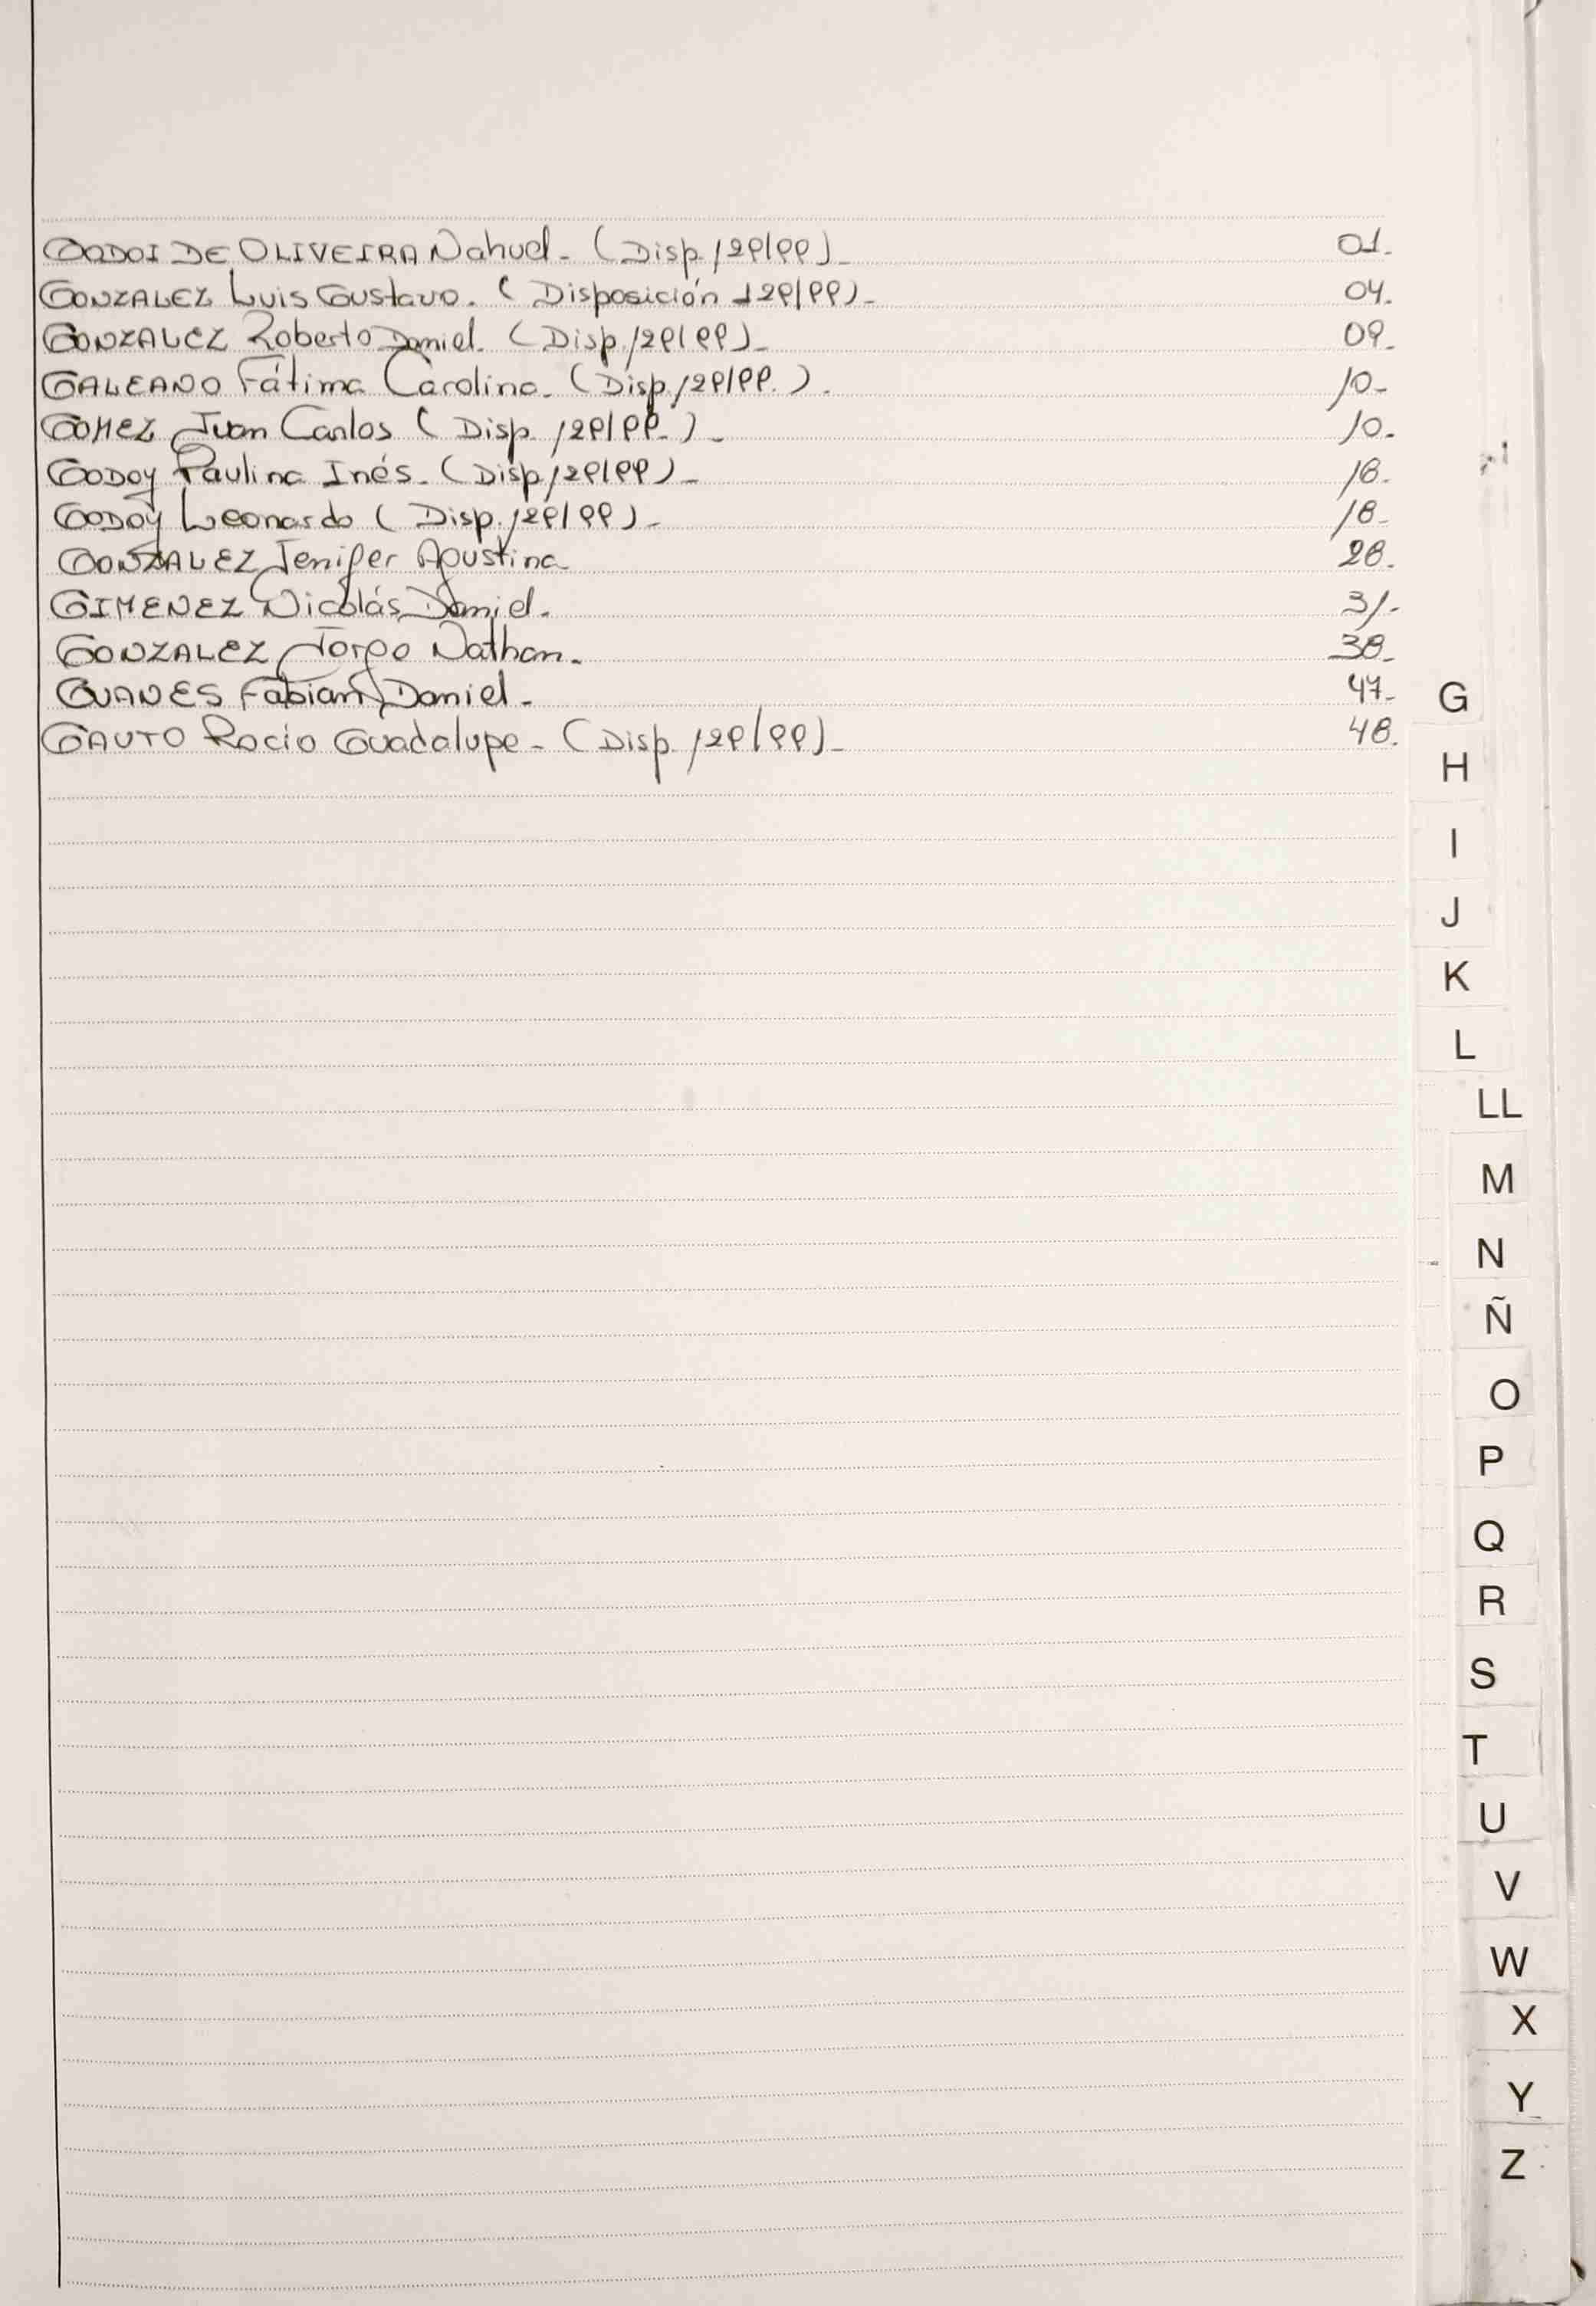 GODOI DE OLIVEIRA Nahuel - (Disp. 129/99) - 01.
GONZALEZ Luis Gustavo. (Disposición 129/99) - 04.
GONZALEZ Roberto Daniel. (Disp. 129/99) - 09.
GALEANO Fátima Carolina. (Disp. 129/99.). 10-
GOMEZ Juan Carlos (Disp. 129/99.) - 10.
GODOY Paulina Inés. (Disp. 129/99) - 18.
GODOY Leonardo (Disp. 129/99) - 18-
GONZALEZ Jenifer Agustina 28.
GIMENEZ Nicolás Daniel. 31-
GONZALEZ Jorge Nathan. 38-
GUANES Fabian Daniel - 47-
GAUTO Rocio Guadalupe - (Disp. 129/99) - 48.
G
H
I
J
K
L
LL
M
N
Ñ
O
P
Q
R
S
T
U
V
W
X
Y
Z